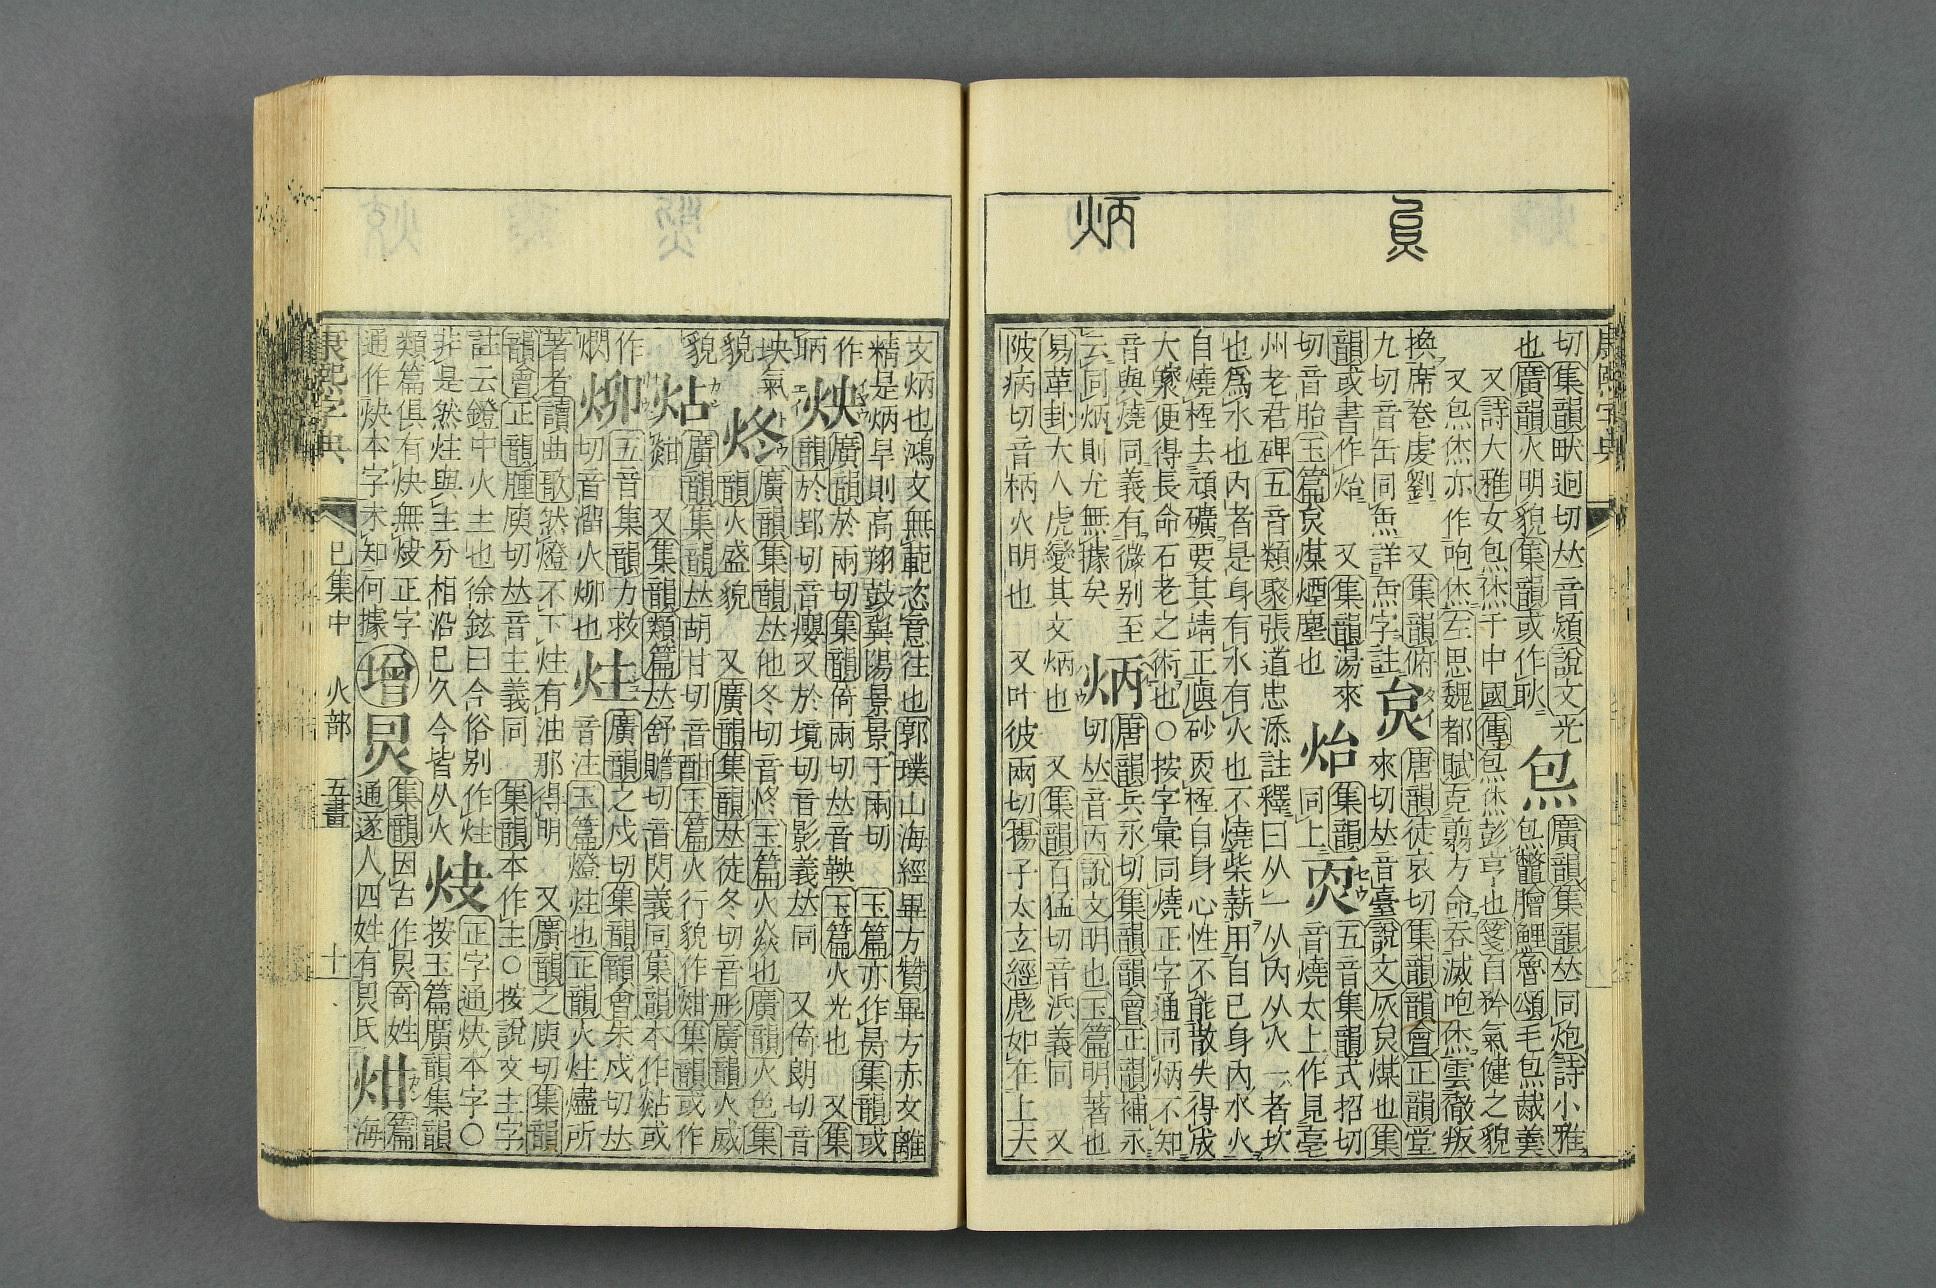 康熙字典
炱
炳
切集韻畎迥切𠀤音熲說文光 廣韻集韻𠀤同炮詩小雅
也廣韻火明貌集韻或作耿 炰 炰鼈膾鯉魯頌毛炰胾羹
又詩大雅女炰烋于中國傳炰烋彭亨也箋自矜氣健之貌
又炰烋亦作咆烋左思魏都賦克翦方命吞滅咆烋雲徹叛
換席卷虔劉 又集韻俯 唐韻徒哀切集韻韻會正韻堂
九切音缶同缹詳缹字註 炱 來切𠀤音臺說文灰炱煤也集
韻或書作炲 又集韻湯來 集韻 五音集韻式招切
切音胎玉篇炱煤煙塵也 炲 同上 音燒太上作見亳
州老君碑五音類聚張道忠添註釋曰从一从內从火一者坎
也爲水也內者是身有水有火也不燒柴薪用自己身內水火
自燒桱去頑礦要其靖正眞砂 桱自身心性不能散失得成
大藥便得長命石老之術也○按字彙同燒正字通同炳不知
音與燒同義有微别至 炳 唐韻兵永切集韻韻會正韻補永
云同炳則尤無據矣 切𠀤音丙說文明也玉篇明著也
易革卦大人虎變其文炳也 又集韻百猛切音浜義同 又
陂病切音柄火明也 又叶彼兩切揚子太玄經彪如在上天
文炳也鴻文無範恣意往也郭璞山海經畢方贊畢方赤文離
精是炳旱則高翔鼓翼陽景景于兩切 玉篇亦作昺集韻或
作昞 炴 廣韻於兩切集韻倚兩切𠀤音鞅玉篇火光也 又集
韻於郢切音癭又於境切音影義𠀤同 又倚朗切音
坱氣貌 炵 廣韻集韻𠀤他冬切音佟玉篇火焱也廣韻火色集
韻火盛貌 又廣韻集韻𠀤徒冬切音彤廣韻火威
貌 炶 廣韻集韻𠀤胡甘切音酣玉篇火行貌作 集韻或作
又集韻類篇𠀤舒贍切音閃義同集韻本作煔或
作 五音集韻力救 廣韻之戍切集韻韻會朱戍切𠀤
切音溜火 也 炷 音注玉篇燈炷也正韻火炷燼所
著者讀曲歌然燈不下炷有油那得明 又廣韻之庾切集韻
韻會正韻腫庾切𠀤音主義同 集韻本作主○按說文主字
註云鐙中火主也徐鉉曰今俗别作炷 正字通炔本字○
非是然炷與主分相沿已久今皆从火 按玉篇廣韻集韻
類篇俱有炔無 正字 增 炅 集韻因古作炅奇姓 篇
通作炔本字未知何據 通遂人四姓有炅氏 海
康熙字典 巳集中 火部 五畫 十